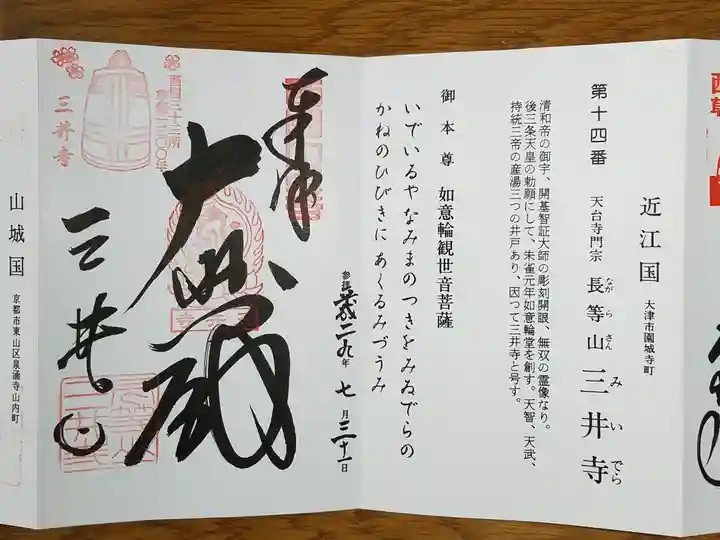 近江国 大津市園城寺町
第十四番 天台寺門宗 長等山 三井寺
ながらさん みいでら
清和帝の御宇、開基智証大師の彫刻開眼、無双の霊像なり。
後三条天皇の勅願にして、朱雀元年如意輪堂を創す。天智、天武、
持統三帝の産湯三つの井戸あり、因つて三井寺と号す。
御本尊 如意輪観世音菩薩
いでいるやなみまのつきをみゐでらの
かねのひびきにあくるみづうみ
奉拝
参拝 二九年 七月三十一日
大悲殿
西国三十三所
三井寺
三井寺
山城国 京都市東山区泉涌寺山内町